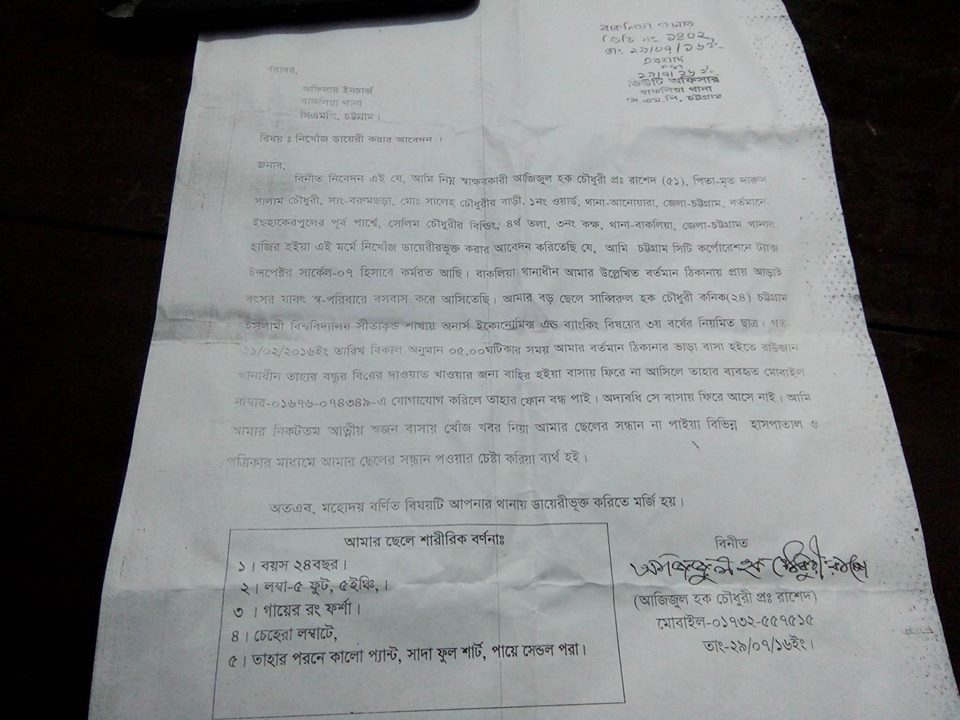 বাকলিয়া থানার
জিডি নং ১৪০২,
তাং ২৯/০৭/১৬ইং
২৯/৭/১৬ ইং
ডিউটি অফিসার
বাকলিয়া থানা
সি.এম.পি, চট্টগ্রাম
বরাবর,
অফিসার ইনচার্জ
বাকলিয়া থানা
সিএমপি, চট্টগ্রাম।
বিষয় ঃ নিখোঁজ ডায়েরী করার আবেদন ।
জনাব,
বিনীত নিবেদন এই যে, আমি নিম্ন স্বাক্ষরকারী আজিজুল হক চৌধুরী প্রঃ রাশেদ (৫১), পিতা-মৃত দারুল
সালাম চৌধুরী, সাং-বরুমছড়া, মোঃ সালেহ চৌধুরীর বাড়ী, ১নং ওয়ার্ড, থানা-আনোয়ারা, জেলা-চট্টগ্রাম, বর্তমানে
ইছহাকেরপুলের পূর্ব পার্শ্বে, সেলিম চৌধুরীর বিল্ডিং, ৪র্থ তলা, ৩নং কক্ষ, থানা-বাকলিয়া, জেলা-চট্টগ্রাম থানায়
হাজির হইয়া এই মর্মে নিখোঁজ ডায়েরীরভূক্ত করার আবেদন করিতেছি যে, আমি চট্টগ্রাম সিটি কর্পোরেশনে ট্যাক্স
ইন্সপেক্টর সার্কেল-০৭ হিসাবে কর্মরত আছি। বাকলিয়া থানাধীন আমার উল্লেখিত বর্তমান ঠিকানায় প্রায় আড়াই
বৎসর যাবৎ স্ব-পরিবারে বসবাস করে আসিতেছি। আমার বড় ছেলে সাব্বিরুল হক চৌধুরী কনিক(২৪) চট্টগ্রাম
ইসলামী বিশ্ববিদ্যালয় সীতাকুন্ড শাখায় অনার্স ইকোনোমিক্স এন্ড ব্যাংকিং বিষয়ের ৩য় বর্ষের নিয়মিত ছাত্র। গত
২১/০২/২০১৬ইং তারিখ বিকাল অনুমান ০৫.০০ঘটিকার সময় আমার বর্তমান ঠিকানার ভাড়া বাসা হইতে রাউজান
থানাধীন তাহার বন্ধুর বিয়ের দাওয়াত খাওয়ার জন্য বাহির হইয়া বাসায় ফিরে না আসিলে তাহার ব্যবহৃত মোবাইল
নাম্বার-০১৬৭৬-০৭৪৩৪৯-এ যোগাযোগ করিলে তাহার ফোন বন্ধ পাই। অদ্যবধি সে বাসায় ফিরে আসে নাই। আমি
আমার নিকটতম আত্নীয় স্বজন বাসায় খোঁজ খবর নিয়া আমার ছেলের সন্ধান না পাইয়া বিভিন্ন হাসপাতাল ও
পত্রিকার মাধ্যমে আমার ছেলের সন্ধান পওয়ার চেষ্টা করিয়া ব্যর্থ হই।
অতএব, মহোদয় বর্ণিত বিষয়টি আপনার থানায় ডায়েরীভূক্ত করিতে মর্জি হয়।
আমার ছেলে শারীরিক বর্ণনাঃ
১। বয়স ২৪বছর।
২। লম্বা-৫ ফুট, ৫ইঞ্চি,।
৩। গায়ের রং ফর্শা।
৪। চেহেরা লম্বাটে,
৫। তাহার পরনে কালো প্যান্ট, সাদা ফুল শার্ট, পায়ে সেন্ডল পরা।
বিনীত
আজিজুল হক চৌধুরী রাশেদ
(আজিজুল হক চৌধুরী প্রঃ রাশেদ)
মোবাইল-০১৭৩২-৫৫৭৫১৫
তাং-২৯/০৭/১৬ইং।